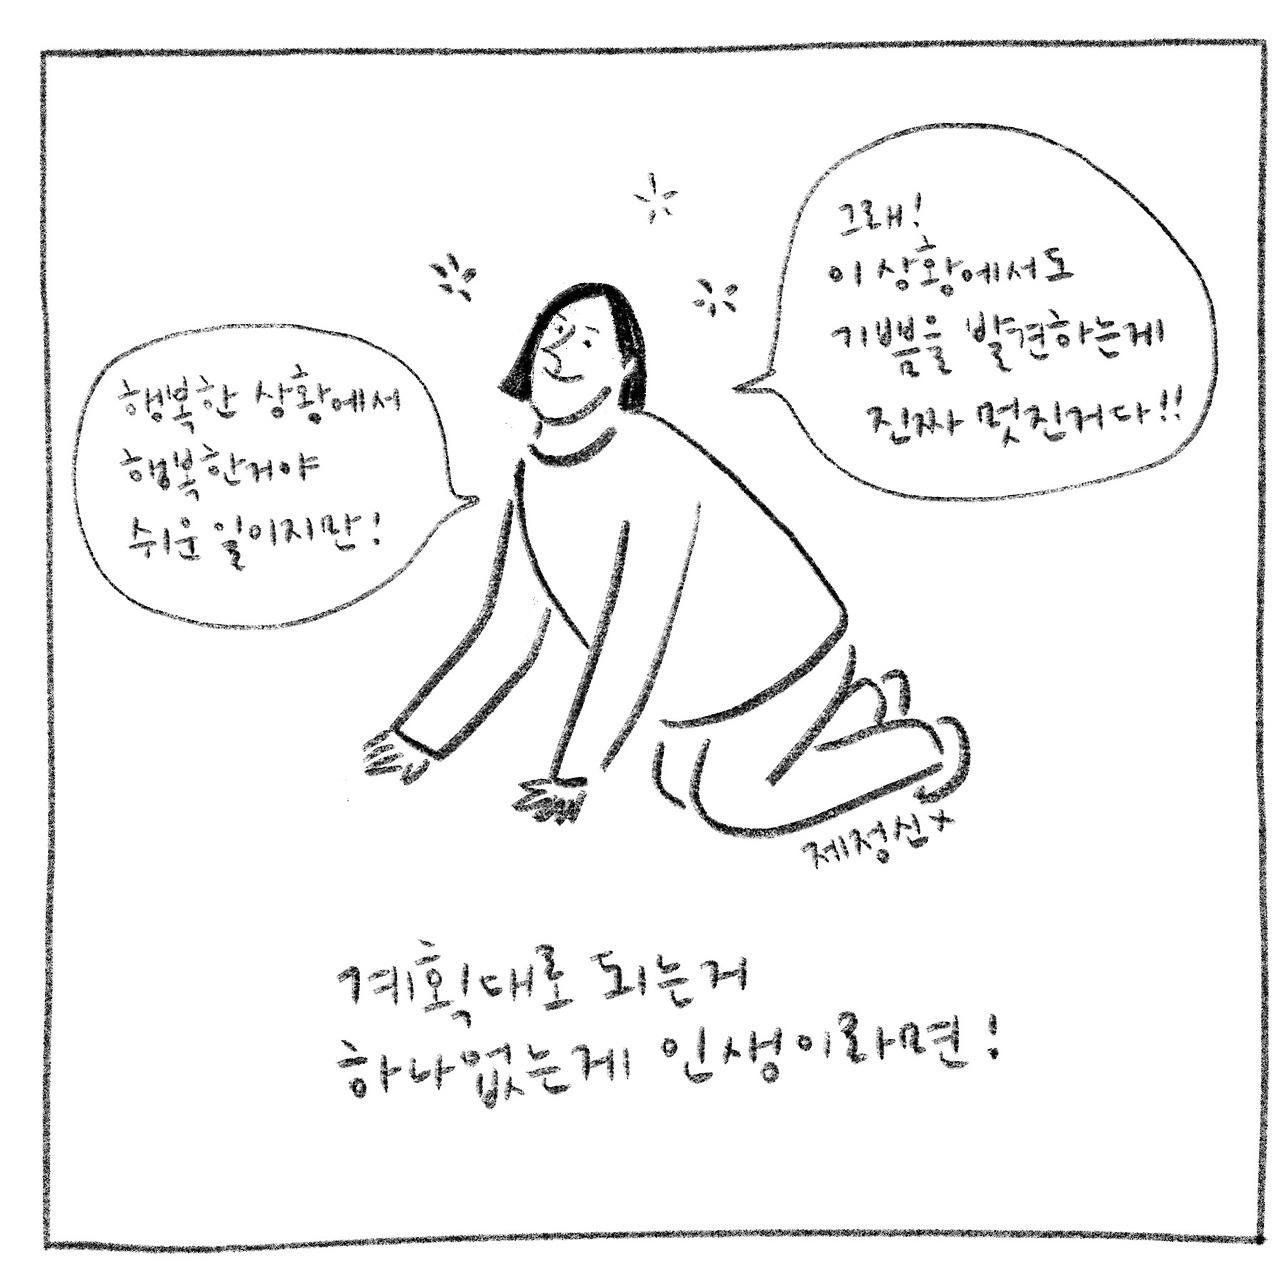 행복한 상황에서
행복한거야
쉬운 일이지만!
그래!
이 상황에서도
기쁨을 발견하는게
진짜 멋진거다!!
제정신x
계획대로 되는거
하나없는게 인생이라면!